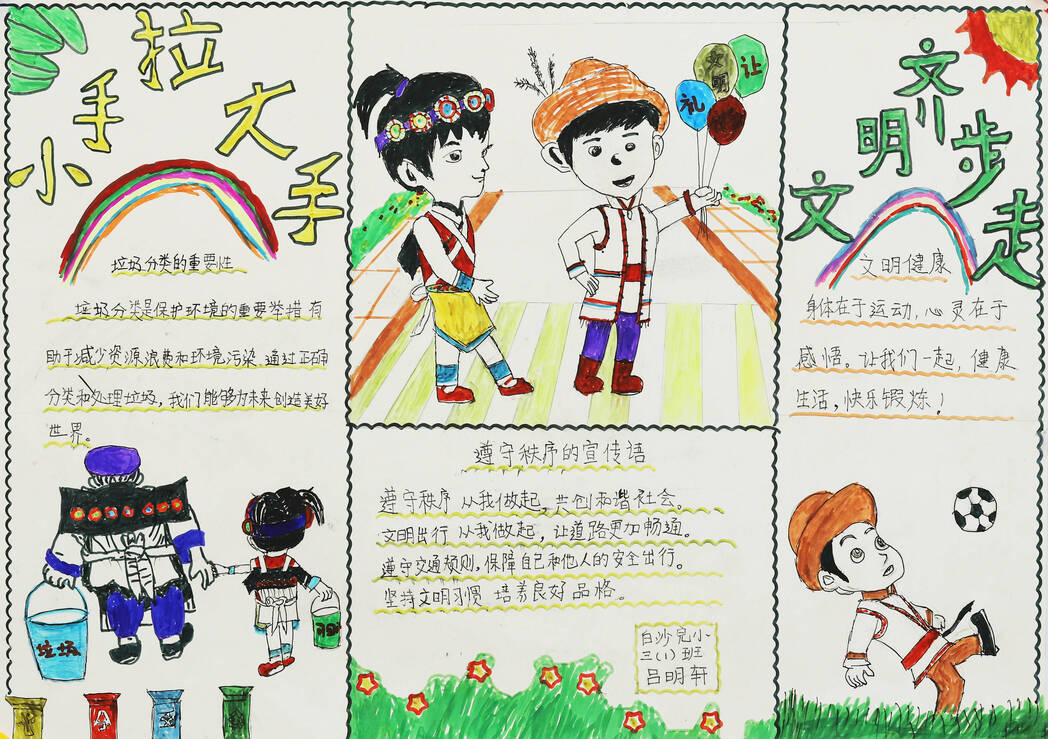 小手拉大手
垃圾分类的重要性
垃圾分类是保护环境的重要举措 有
助于减少资源浪费和环境污染.通过正确
分类和处理垃圾，我们能够为未来创造美好
世界。
垃圾
礼
文明
让
遵守秩序的宣传语
遵守秩序 从我做起，共创和谐社会。
文明出行 从我做起，让道路更加畅通。
遵守交通规则，保障自己和他人的安全出行。
坚持文明习惯 培养良好品格。
白沙完小
三(1)班
吕明轩
文明齐步走
文明健康
身体在于运动，心灵在于
感悟。让我们一起，健康
生活，快乐锻炼！